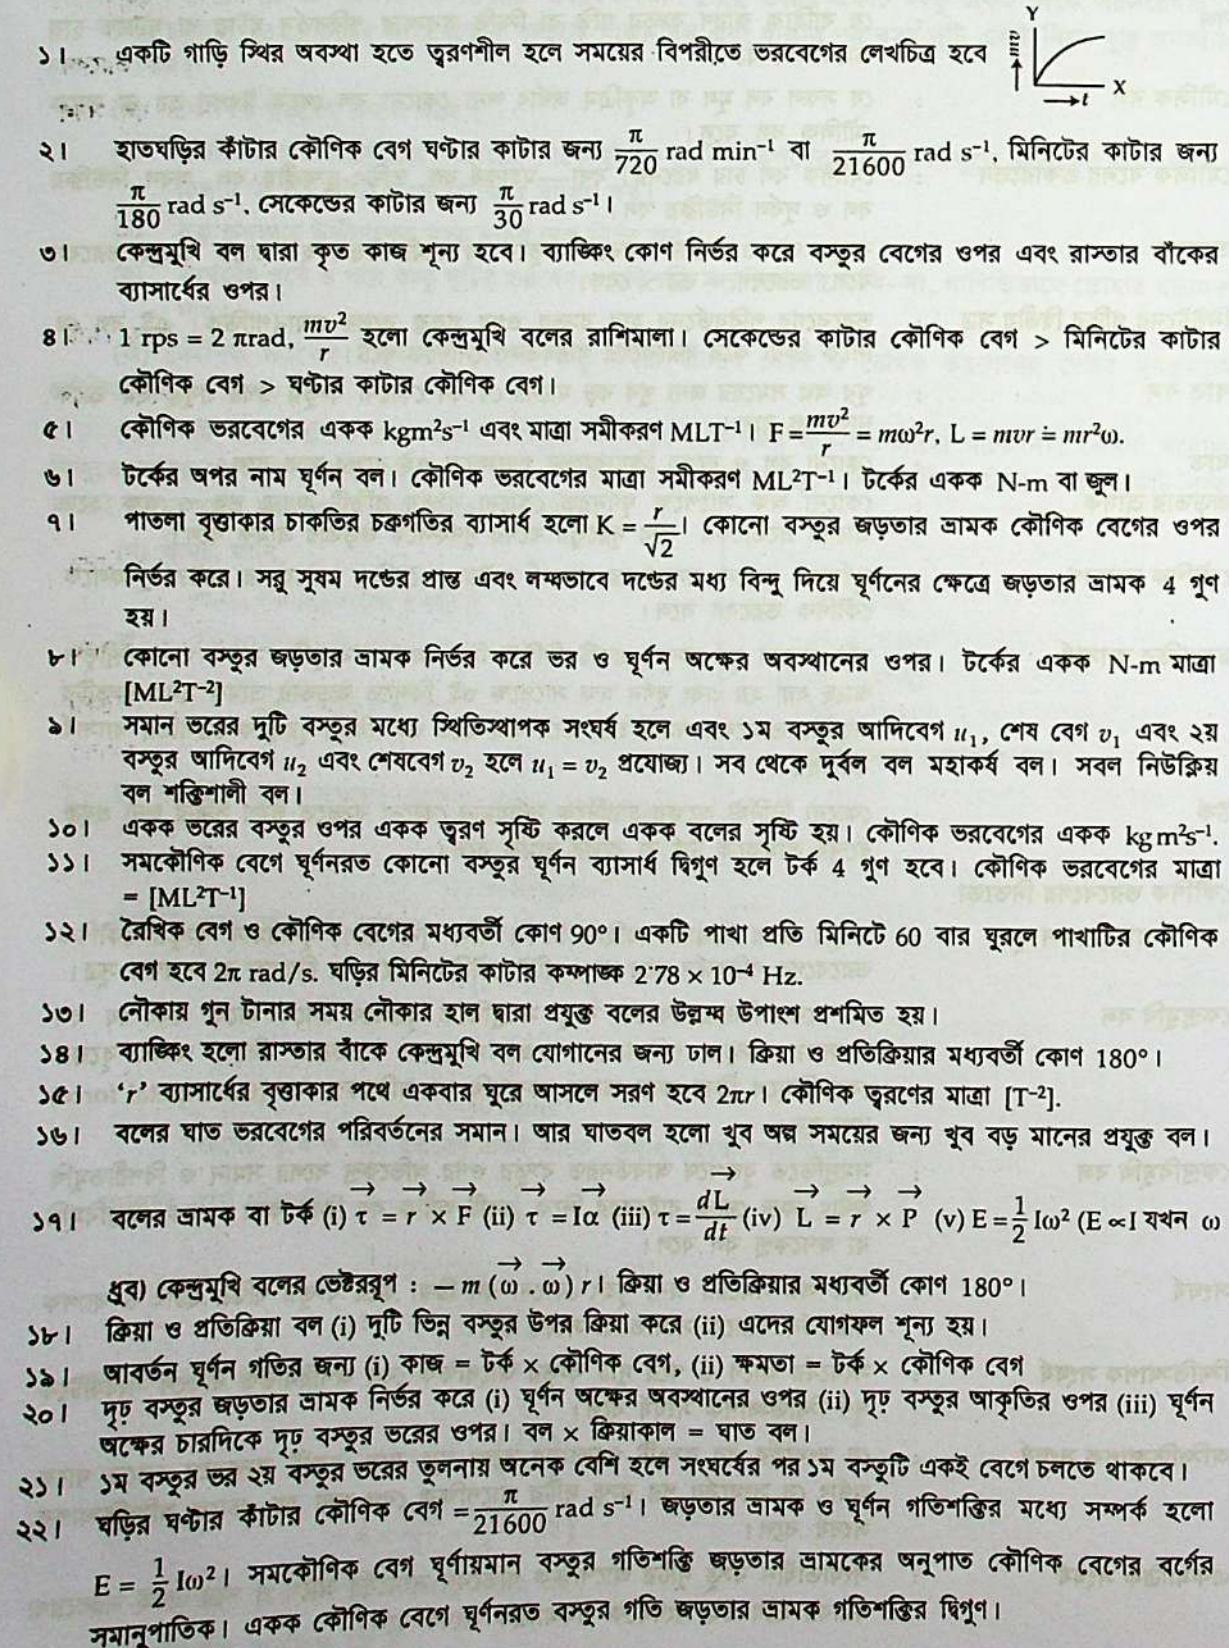 ১। একটি গাড়ি স্থির অবস্থা হতে ত্বরণশীল হলে সময়ের বিপরীতে ভরবেগের লেখচিত্র হবে Y X t
২। হাতঘড়ির কাঁটার কৌণিক বেগ ঘণ্টার কাটার জন্য π/720 rad min⁻¹ বা π/21600 rad s⁻¹, মিনিটের কাটার জন্য
π/180 rad s⁻¹, সেকেন্ডের কাটার জন্য π/30 rad s⁻¹।
৩। কেন্দ্রমুখি বল দ্বারা কৃত কাজ শূন্য হবে। ব্যাঙ্কিং কোণ নির্ভর করে বস্তুর বেগের ওপর এবং রাস্তার বাঁকের
ব্যাসার্ধের ওপর।
৪। 1 rps = 2 πrad, mv²/r হলো কেন্দ্রমুখি বলের রাশিমালা। সেকেন্ডের কাটার কৌণিক বেগ > মিনিটের কাটার
কৌণিক বেগ > ঘণ্টার কাটার কৌণিক বেগ।
৫। কৌণিক ভরবেগের একক kgm²s⁻¹ এবং মাত্রা সমীকরণ MLT⁻¹। F = mv²/r = mω²r, L = mvr = mr²ω.
৬। টর্কের অপর নাম ঘূর্ণন বল। কৌণিক ভরবেগের মাত্রা সমীকরণ ML²T⁻¹। টর্কের একক N-m বা জুল।
৭। পাতলা বৃত্তাকার চাকতির চক্রগতির ব্যাসার্ধ হলো K = r/√2। কোনো বস্তুর জড়তার ভ্রামক কৌণিক বেগের ওপর
নির্ভর করে। সরু সুষম দণ্ডের প্রান্ত এবং লম্বভাবে দণ্ডের মধ্য বিন্দু দিয়ে ঘূর্ণনের ক্ষেত্রে জড়তার ভ্রামক 4 গুণ
হয়।
৮। কোনো বস্তুর জড়তার ভ্রামক নির্ভর করে ভর ও ঘূর্ণন অক্ষের অবস্থানের ওপর। টর্কের একক N-m মাত্রা
[ML²T⁻²]
৯। সমান ভরের দুটি বস্তুর মধ্যে স্থিতিস্থাপক সংঘর্ষ হলে এবং ১ম বস্তুর আদিবেগ u₁, শেষ বেগ v₁ এবং ২য়
বস্তুর আদিবেগ u₂ এবং শেষবেগ v₂ হলে u₁ = v₂ প্রযোজ্য। সব থেকে দুর্বল বল মহাকর্ষ বল। সবল নিউক্লিয়
বল শক্তিশালী বল।
১০। একক ভরের বস্তুর ওপর একক ত্বরণ সৃষ্টি করলে একক বলের সৃষ্টি হয়। কৌণিক ভরবেগের একক kg m²s⁻¹.
১১। সমকৌণিক বেগে ঘূর্ণনরত কোনো বস্তুর ঘূর্ণন ব্যাসার্ধ দ্বিগুণ হলে টর্ক 4 গুণ হবে। কৌণিক ভরবেগের মাত্রা
= [ML²T⁻¹]
১২। রৈখিক বেগ ও কৌণিক বেগের মধ্যবর্তী কোণ 90°। একটি পাখা প্রতি মিনিটে 60 বার ঘুরলে পাখাটির কৌণিক
বেগ হবে 2π rad/s. ঘড়ির মিনিটের কাটার কম্পাঙ্ক 2·78 × 10⁻⁴ Hz.
১৩। নৌকায় গুন টানার সময় নৌকার হাল দ্বারা প্রযুক্ত বলের উল্লম্ব উপাংশ প্রশমিত হয়।
১৪। ব্যাঙ্কিং হলো রাস্তার বাঁকে কেন্দ্রমুখি বল যোগানের জন্য ঢাল। ক্রিয়া ও প্রতিক্রিয়ার মধ্যবর্তী কোণ 180°।
১৫। ‘r’ ব্যাসার্ধের বৃত্তাকার পথে একবার ঘুরে আসলে সরণ হবে 2πr। কৌণিক ত্বরণের মাত্রা [T⁻²].
১৬। বলের ঘাত ভরবেগের পরিবর্তনের সমান। আর ঘাতবল হলো খুব অল্প সময়ের জন্য খুব বড় মানের প্রযুক্ত বল।
১৭। বলের ভ্রামক বা টর্ক (i) τ⃗ = r⃗ × F⃗ (ii) τ⃗ = Iα⃗ (iii) τ = dL⃗/dt (iv) L⃗ = r⃗ × P⃗ (v) E = 1/2 Iω² (E ∝ I যখন ω
ধ্রুব) কেন্দ্রমুখি বলের ভেক্টররূপ : – m (ω⃗ . ω⃗) r। ক্রিয়া ও প্রতিক্রিয়ার মধ্যবর্তী কোণ 180°।
১৮। ক্রিয়া ও প্রতিক্রিয়া বল (i) দুটি ভিন্ন বস্তুর উপর ক্রিয়া করে (ii) এদের যোগফল শূন্য হয়।
১৯। আবর্তন ঘূর্ণন গতির জন্য (i) কাজ = টর্ক × কৌণিক বেগ, (ii) ক্ষমতা = টর্ক × কৌণিক বেগ
২০। দৃঢ় বস্তুর জড়তার ভ্রামক নির্ভর করে (i) ঘূর্ণন অক্ষের অবস্থানের ওপর (ii) দৃঢ় বস্তুর আকৃতির ওপর (iii) ঘূর্ণন
অক্ষের চারদিকে দৃঢ় বস্তুর ভরের ওপর। বল × ক্রিয়াকাল = ঘাত বল।
২১। ১ম বস্তুর ভর ২য় বস্তুর ভরের তুলনায় অনেক বেশি হলে সংঘর্ষের পর ১ম বস্তুটি একই বেগে চলতে থাকবে।
২২। ঘড়ির ঘণ্টার কাঁটার কৌণিক বেগ = π/21600 rad s⁻¹। জড়তার ভ্রামক ও ঘূর্ণন গতিশক্তির মধ্যে সম্পর্ক হলো
E = 1/2 Iω²। সমকৌণিক বেগ ঘূর্ণায়মান বস্তুর গতিশক্তি জড়তার ভ্রামকের অনুপাত কৌণিক বেগের বর্গের
সমানুপাতিক। একক কৌণিক বেগে ঘূর্ণনরত বস্তুর গতি জড়তার ভ্রামক গতিশক্তির দ্বিগুণ।